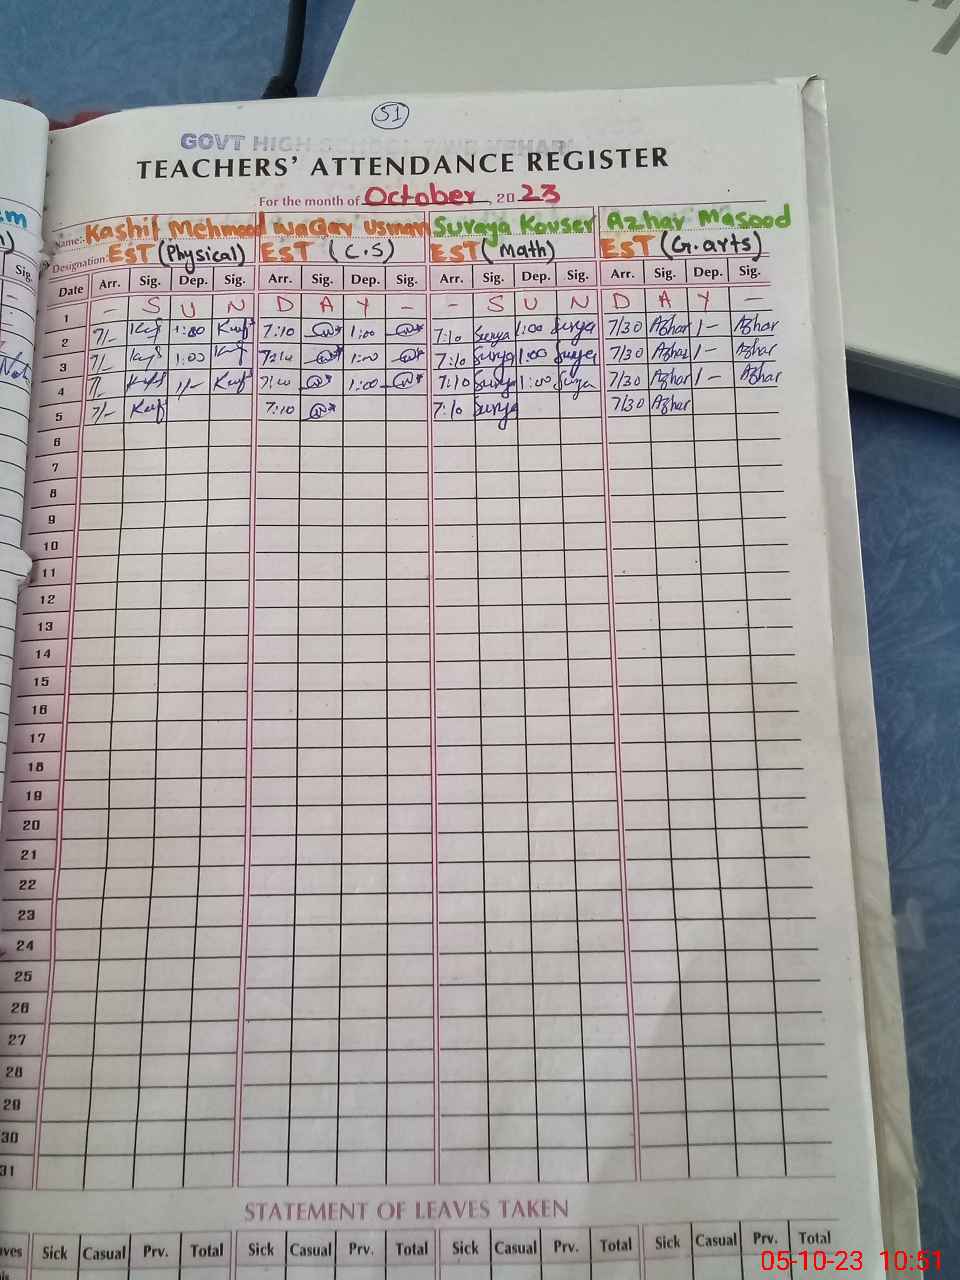 51
GOVT HIGH SCHOOL
TEACHERS' ATTENDANCE REGISTER
For the month of October, 20 23
Name:- Kashif Mehmood Waqar Usman Suraya Kouser Azhar Masood
Designation: EST (Physical) EST (C.S) EST (Math) EST (G.arts)
Date Arr. Sig. Dep. Sig. Arr. Sig. Dep. Sig. Arr. Sig. Dep. Sig. Arr. Sig. Dep. Sig.
1 - S U N D A Y - - S U N D A Y -
2 7/- 1:00 7:10 1:00 7:10 Surya 1:00 Surya 7/30 Azhar 1- Azhar
3 7/- 1:00 7:10 1:00 7:10 Surya 1:00 Surya 7/30 Azhar 1- Azhar
4 7/- 1/- 7:10 1:00 7:10 Surya 1:00 Surya 7/30 Azhar 1- Azhar
5 7/- 7:10 7:10 Surya 7/30 Azhar
6
7
8
9
10
11
12
13
14
15
16
17
18
19
20
21
22
23
24
25
26
27
28
29
30
31
STATEMENT OF LEAVES TAKEN
Sick Casual Prv. Total Sick Casual Prv. Total Sick Casual Prv. Total Sick Casual Prv. Total
05-10-23 10:51